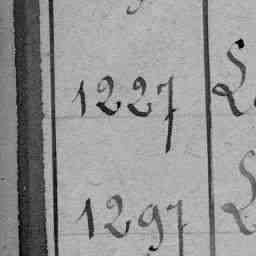 1227
1297